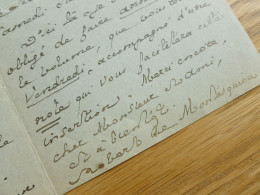 samedi
D'ici là je
obligé de faire
le volume, que vous
vendredi, accompagné d'une
note qui vous facilitera cette
insertion. Merci encore,
cher Monsieur et ami,
et à bientôt
Robert de Montesquiou